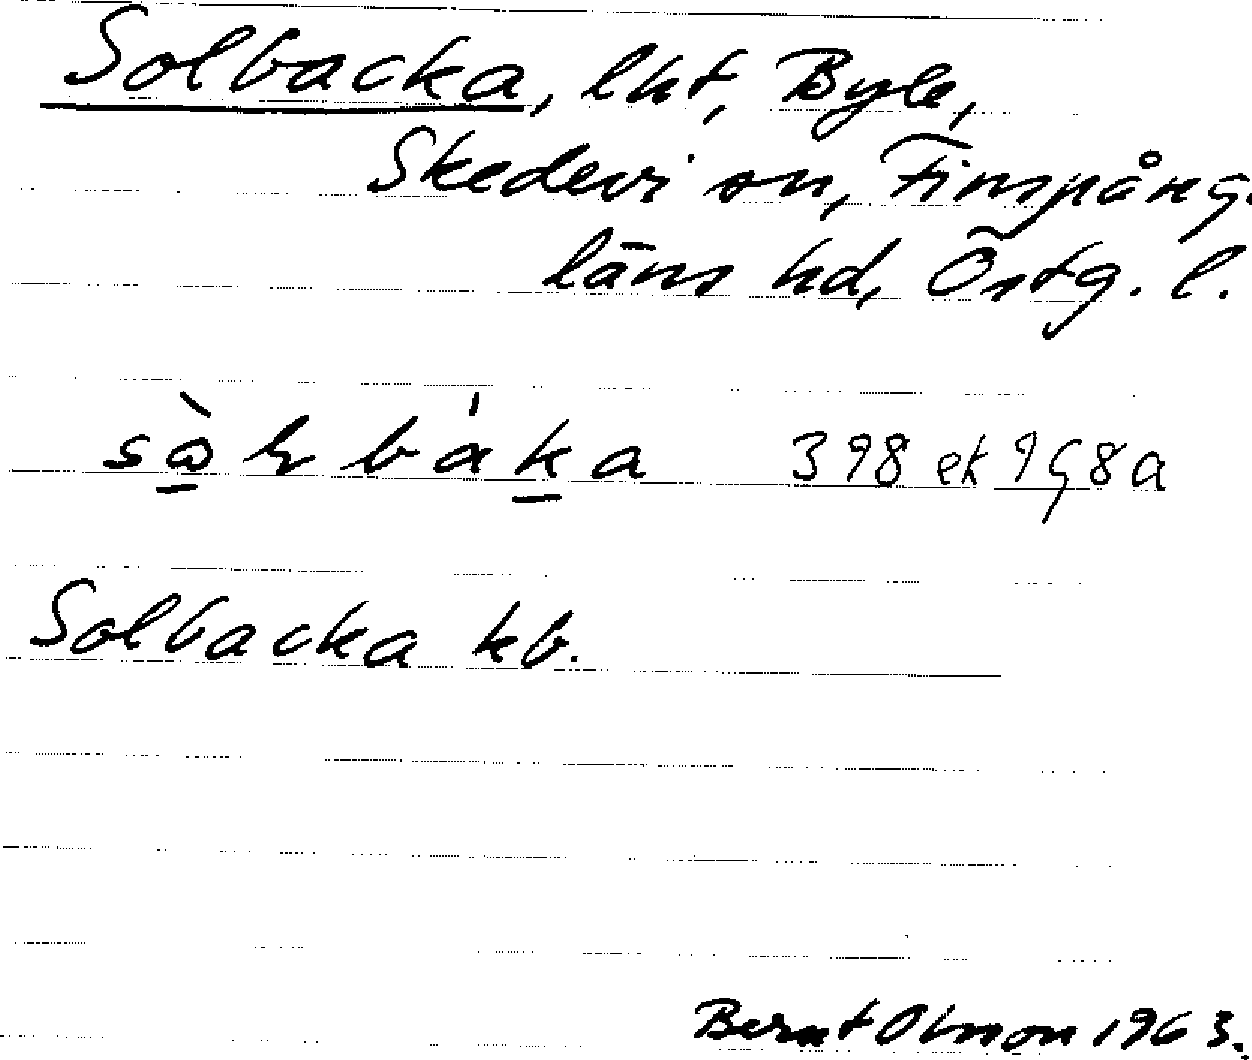 Solbacka, lht, Byle,
Skedevi sn, Finspång.
läns hd, Östg. l.
398 ek 198a
Solbacka kb.
Bernt Olsson 1963.